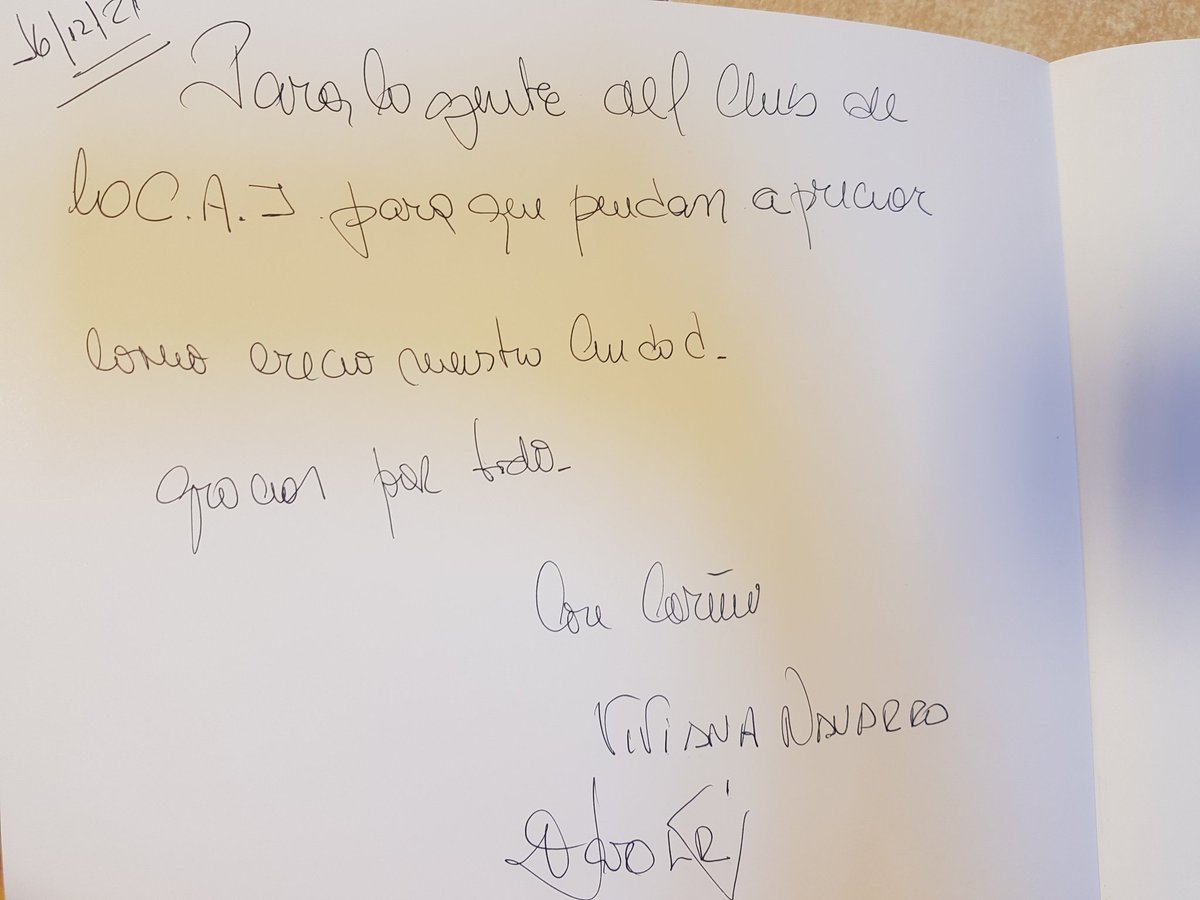 16/12/21
Para la gente del Club de
la C.A.I. para que puedan apreciar
como crecio nuestra Ciudad.
gracias por todo.
Con Cariño
VIVIANA NAVARRO